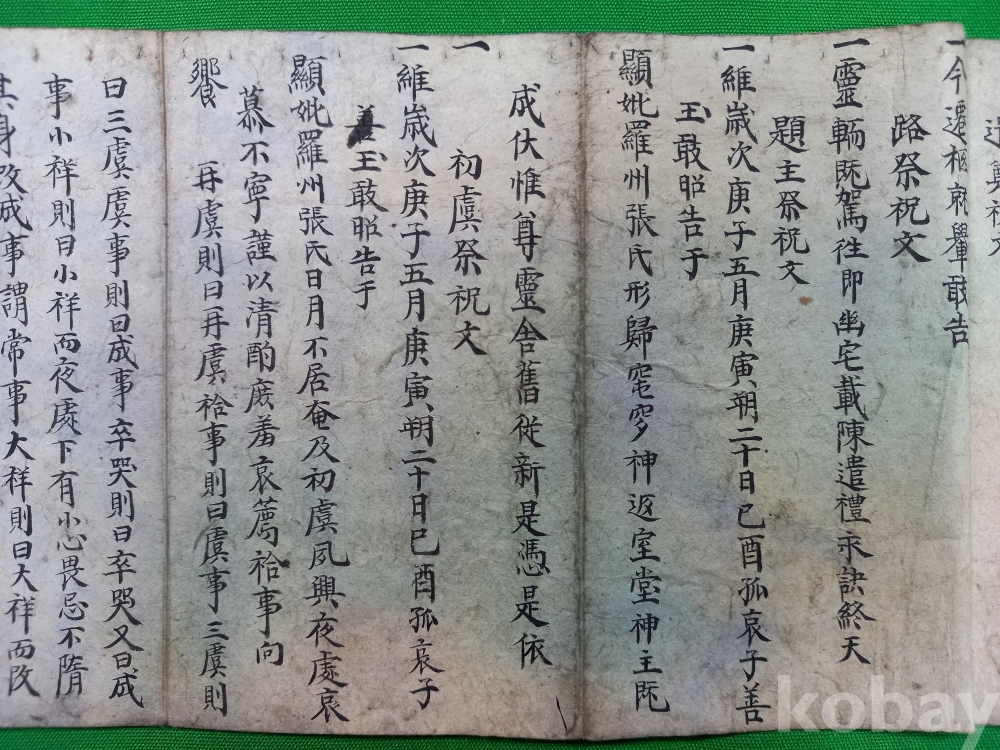 遷奠祝文
一今遷柩就轝敢告
路祭祝文
一靈輀旣駕往卽幽宅載陳遣禮永訣終天
題主祭祝文
一維歲次庚子五月庚寅朔二十日己酉孤哀子善
玉敢昭告于
顯妣羅州張氏形歸窀穸神返室堂神主旣
成伏惟尊靈舍舊從新是憑是依
初虞祭祝文
一
一維歲次庚子五月庚寅朔二十日己酉孤哀子
善玉敢昭告于
顯妣羅州張氏日月不居奄及初虞夙興夜處哀
慕不寧謹以清酌庶羞哀薦祫事向
饗 再虞則曰再虞祫事則曰虞事三虞則
曰三虞虞事則曰成事卒哭則曰卒哭又曰成
事小祥則曰小祥而夜處下有小心畏忌不隋
其身改成事謂常事大祥則曰大祥而改
kobay